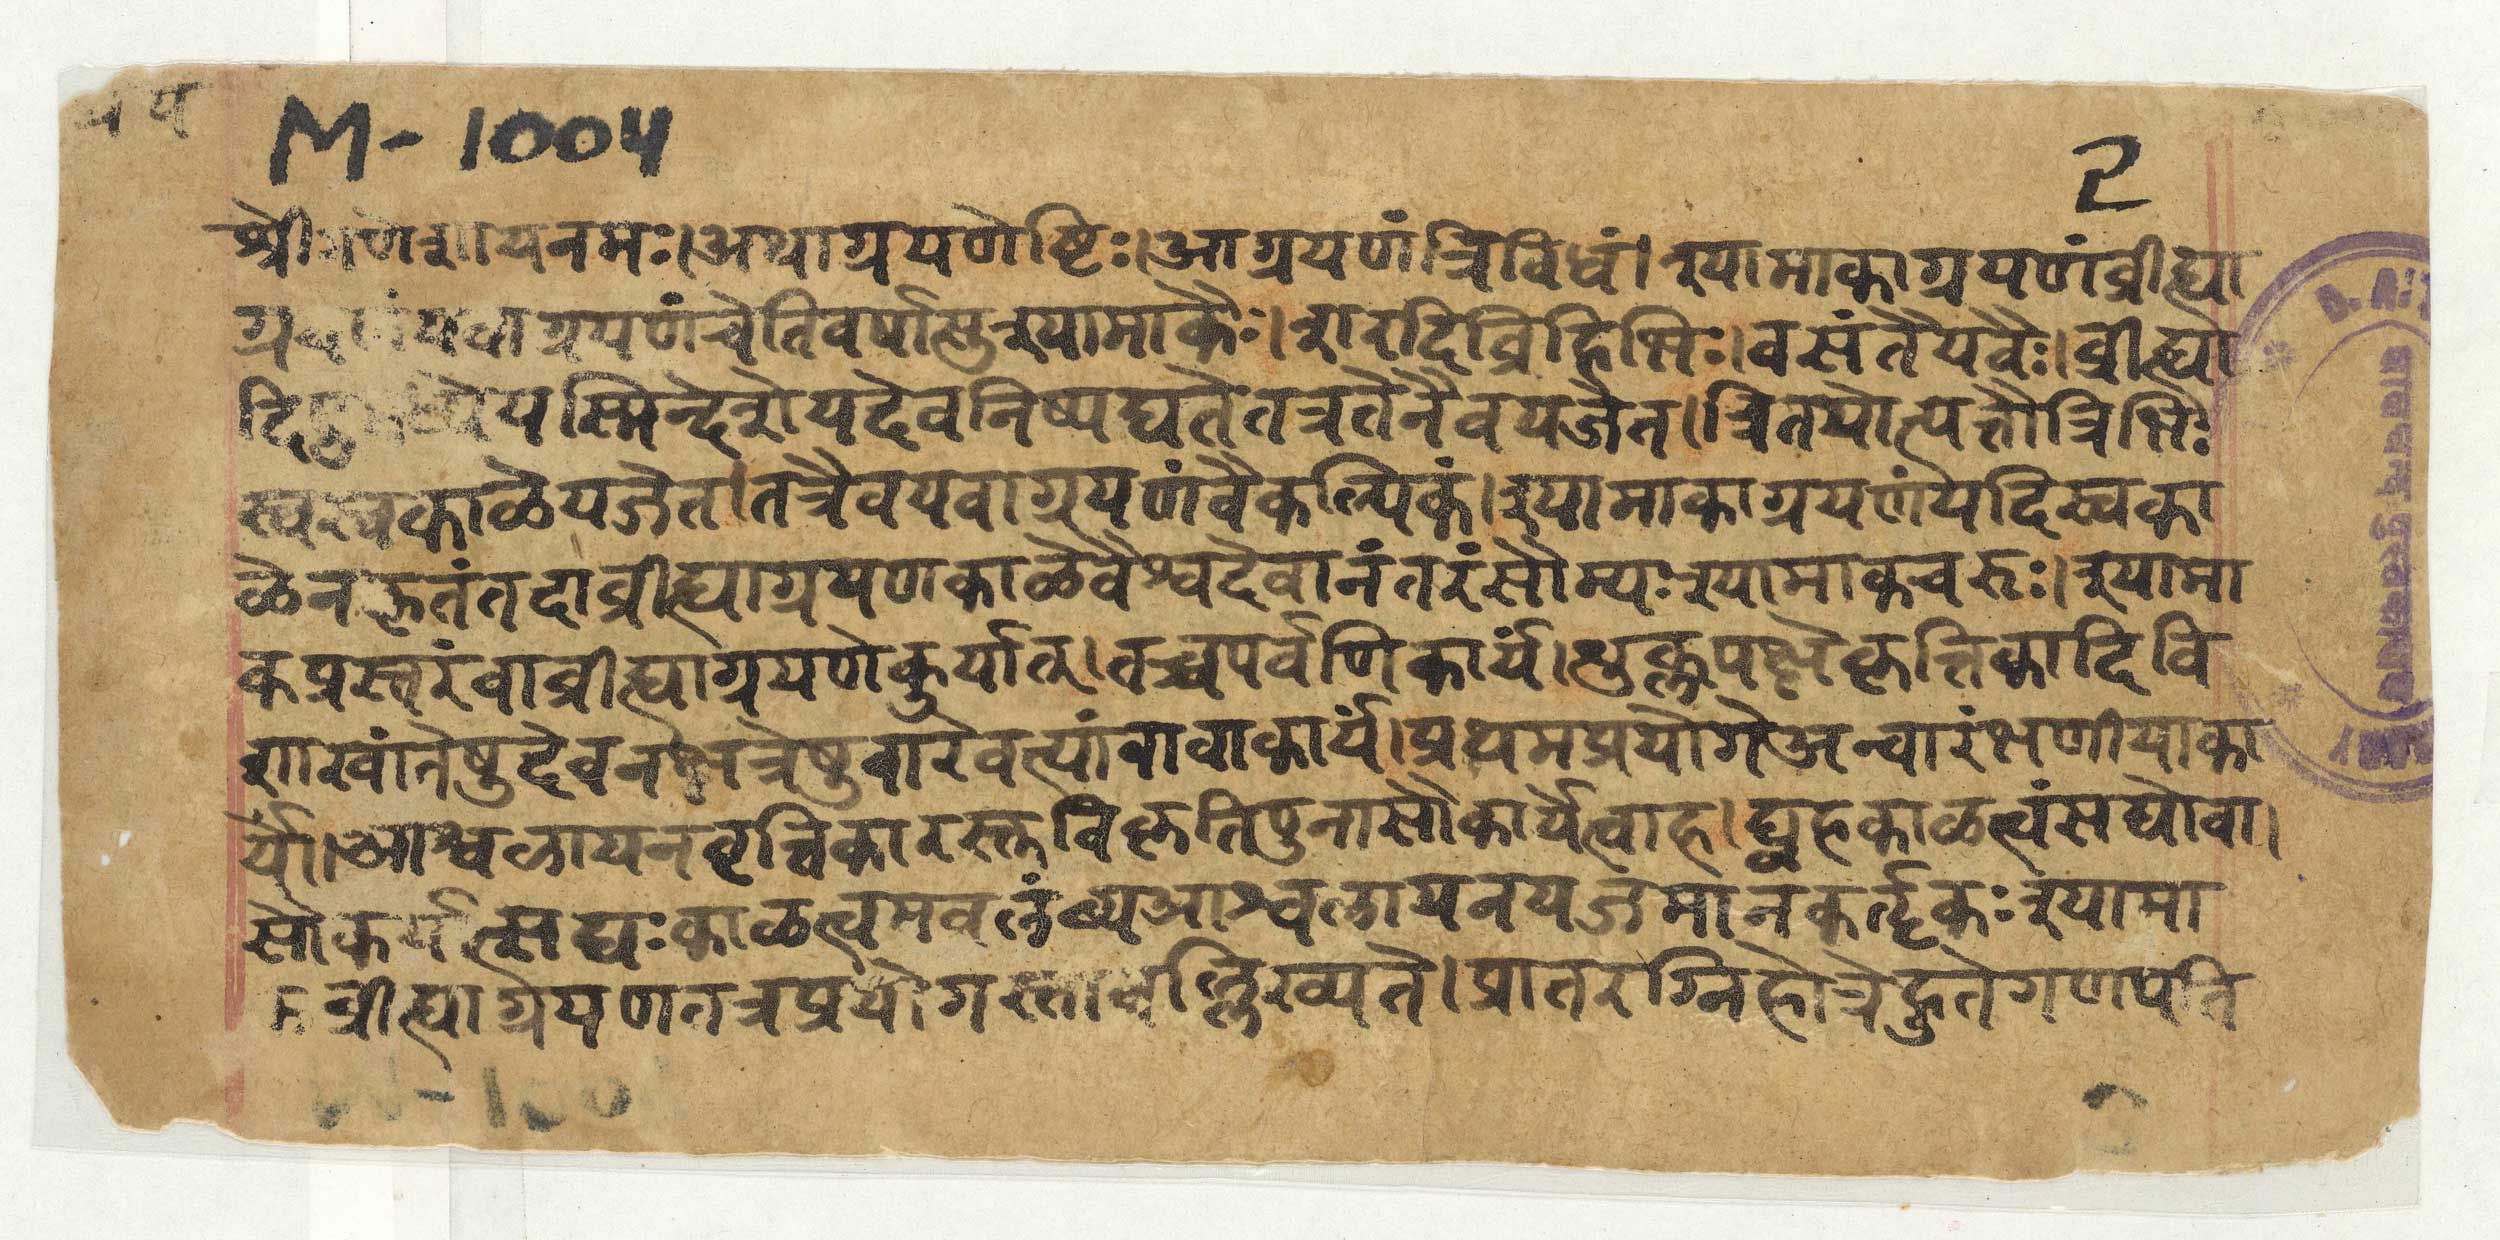 M-1004
2
श्रीगणेशायनमः।अथाग्रयणेष्टिः।आग्रयणंत्रिविधं।श्यामाकाग्रयणंव्रीह्या
ग्रयणंयवाग्रयणंचेतिवर्षासुश्यामाकैः।शरदिव्रिहिभिः।वसंतेयवैः।व्रीह्यो
यस्मिन्देशेयदेवनिष्पद्यतेतत्रतेनैवयजेत।त्रितयोत्पत्तौत्रिभिः
स्वस्वकाळेयजेत।तत्रैवयवाग्रयणंवैकल्पिकं।श्यामाकाग्रयणंयदिस्वका
ळेनकृतंतदाव्रीह्याग्रयणकाळेवैश्वदेवानंतरंसौम्यःश्यामाकचरुः।श्यामा
कप्रस्तरंवाव्रीह्याग्रयणेकुर्यात्।तच्चपर्वणिकार्यं।शुक्लपक्षेकृत्तिकादिवि
शाखांतेषुदेवनक्षत्रेषुवारेवत्यांवावाकार्यं।प्रथमप्रयोगेअन्वारंभणीयाका
र्या।आश्वळायनवृत्तिकारस्तुविकृतिपुनासौकार्येत्याह।द्व्यहकाळत्वंसद्योवा।
सौकर्यात्सद्यःकाळत्वमवलंब्यआश्वलायनयजमानकर्तृकःश्यामा
कव्रीह्याग्रयणतत्रप्रयोगस्तावल्लिख्यते।प्रातरग्निहोत्रेहुतेगणपति